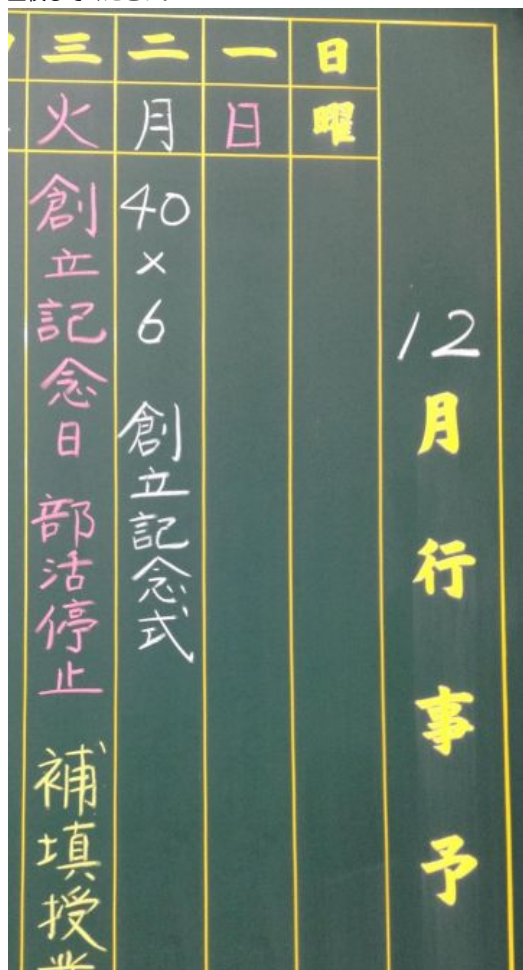 12月行事予
日曜
一日
二月 40×6 創立記念式
三火 創立記念日 部活停止 補填授業